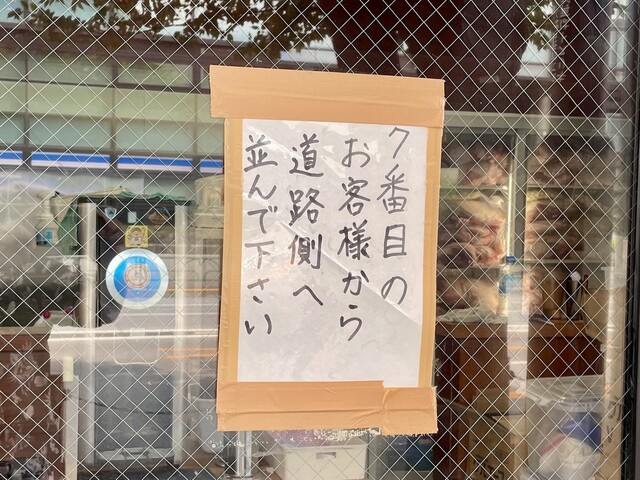 7番目の
お客様から
道路側へ
並んで下さい